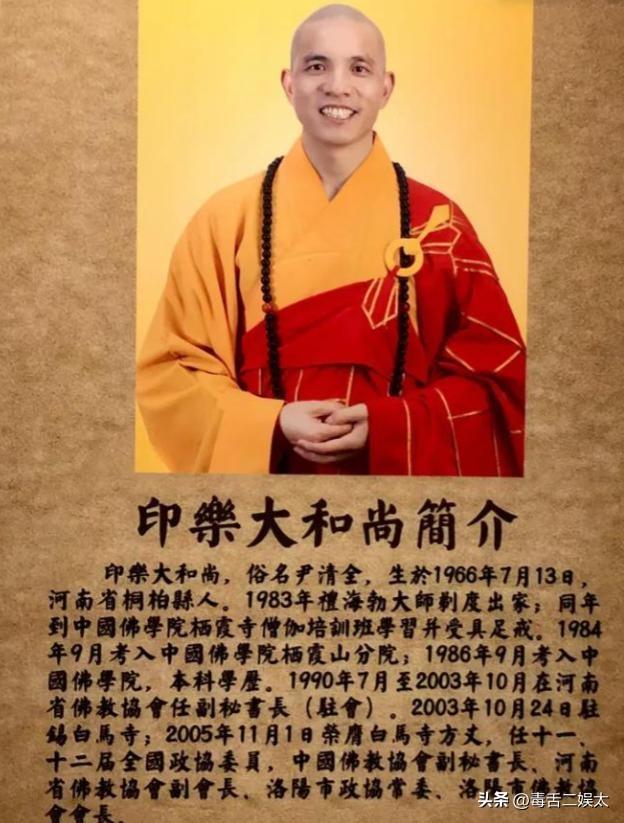 印樂大和尚簡介
印樂大和尚，俗名尹清全，生於1966年7月13日，
河南省桐柏縣人。1983年禮海勃大師剃度出家；同年
到中國佛學院栖霞寺僧伽培訓班學習并受具足戒。1984
年9月考入中國佛學院栖霞山分院；1986年9月考入中
國佛學院，本科學歷。1990年7月至2003年10月在河南
省佛教協會任副秘書長（駐會）。2003年10月24日駐
錫白馬寺；2005年11月1日榮膺白馬寺方丈，任十一、
十二屆全國政協委員，中國佛教協會副秘書長、河南
省佛教協會副會長、洛陽市政協常委、洛陽市佛教協
會會長。
头条 @毒舌二娱太